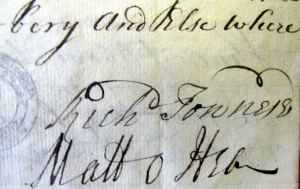 bery And Else where
Rich Fowners
Matt O Hea